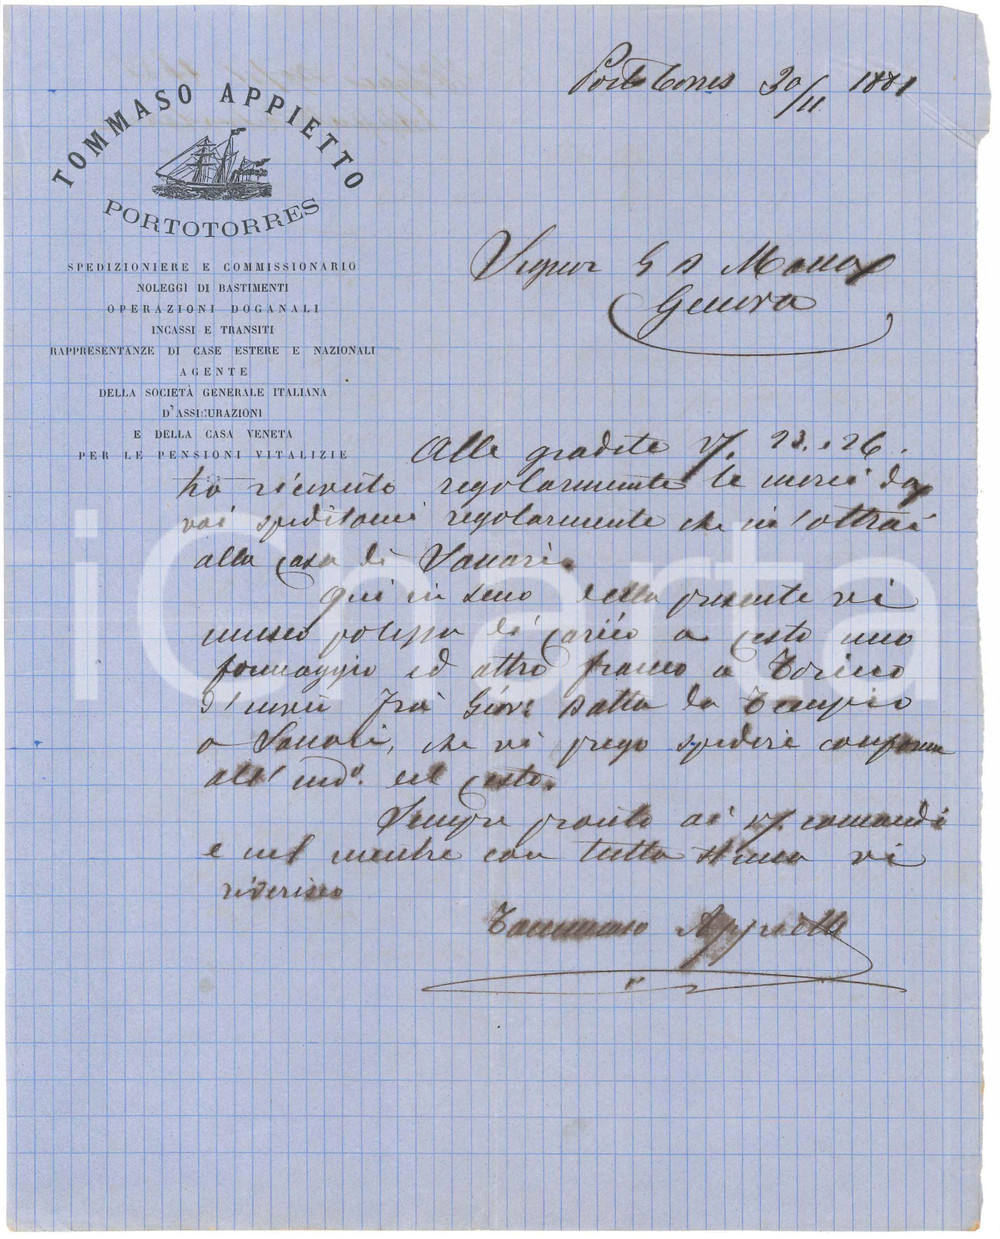 TOMMASO APPIETTO
PORTOTORRES
SPEDIZIONIERE E COMMISSIONARIO
NOLEGGI DI BASTIMENTI
OPERAZIONI DOGANALI
INCASSI E TRANSITI
RAPPRESENTANZE DI CASE ESTERE E NAZIONALI
AGENTE
DELLA SOCIETÀ GENERALE ITALIANA
D'ASSICURAZIONI
E DELLA CASA VENETA
PER LE PENSIONI VITALIZIE
Portotorres 30/11 1881
Signor G B
Genova
Alle gradite V/. 23. e 26.
ho ricevuto regolarmente le merci da
voi speditemi regolarmente che inoltrai
alla casa di Sassari.
Qui in seno della presente vi
polizza di carico a cesto uno
formaggio ed altro franco a Torino
Frà Giov: Satta da Tempio
a Sassari, che vi prego spedire conforme
all' ind°. nel cesto.
Sempre pronto ai V/. comandi
e nel mentre con tutta stima vi
riverisco
Tommaso Appietto
iCharta